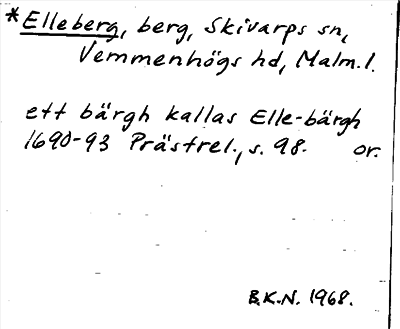 *Elleberg, berg, Skivarps sn,
Vemmenhögs hd, Malm. l.
ett bärgh kallas Elle-bärgh
1690-93 Prästrel., s. 98. or.
B.K.N. 1968.